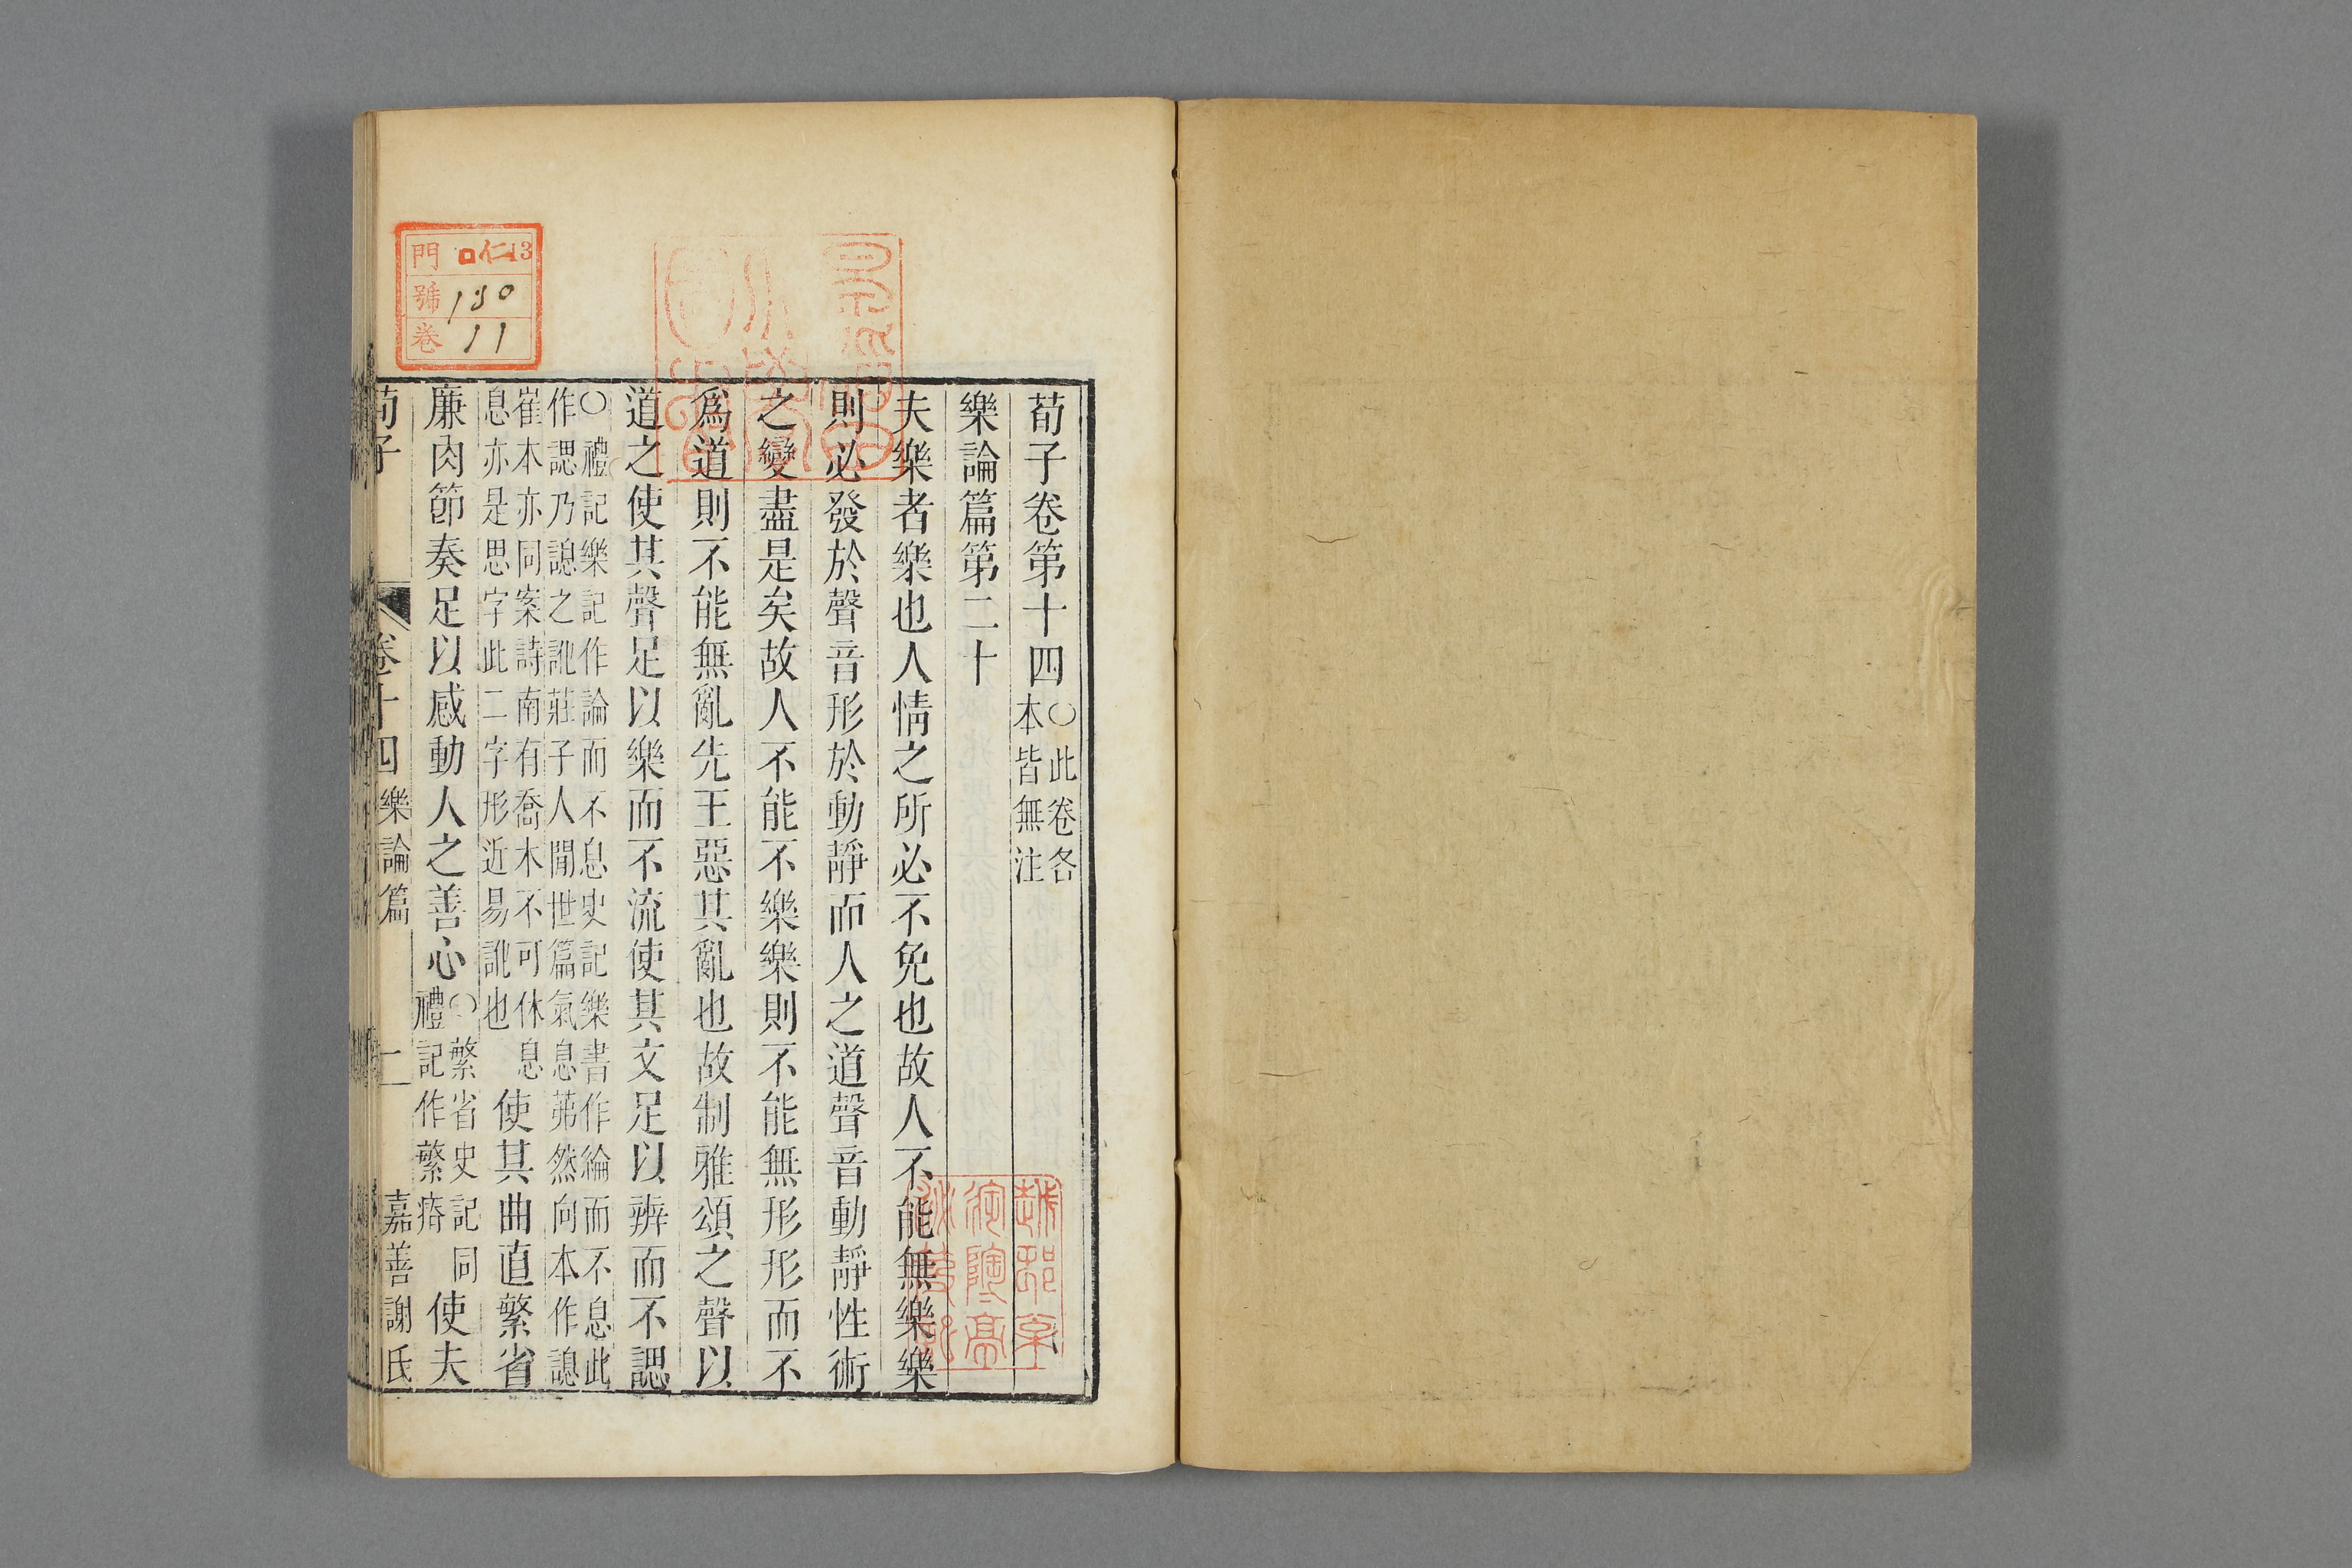 荀子卷第十四○此卷各本皆無注
樂論篇第二十
夫樂者樂也人情之所必不免也故人不能無樂樂
則必發於聲音形於動靜而人之道聲音動靜性術
之變盡是矣故人不能不樂樂則不能無形形而不
爲道則不能無亂先王惡其亂也故制雅頌之聲以
道之使其聲足以樂而不流使其文足以辨而不諰
○禮記樂記作論而不息史記樂書作綸而不息此
作諰乃謥之訛莊子人閒世篇氣息茀然向本作謥
崔本亦同案詩南有喬木不可休息
息亦是思字此二字形近易訛也
使其曲直繁省
廉肉節奏足以感動人之善心○繁省史記同禮記作繁瘠使夫
荀子
卷十四
樂論篇
一
嘉善謝氏
門 口仁13
號 130
卷 11